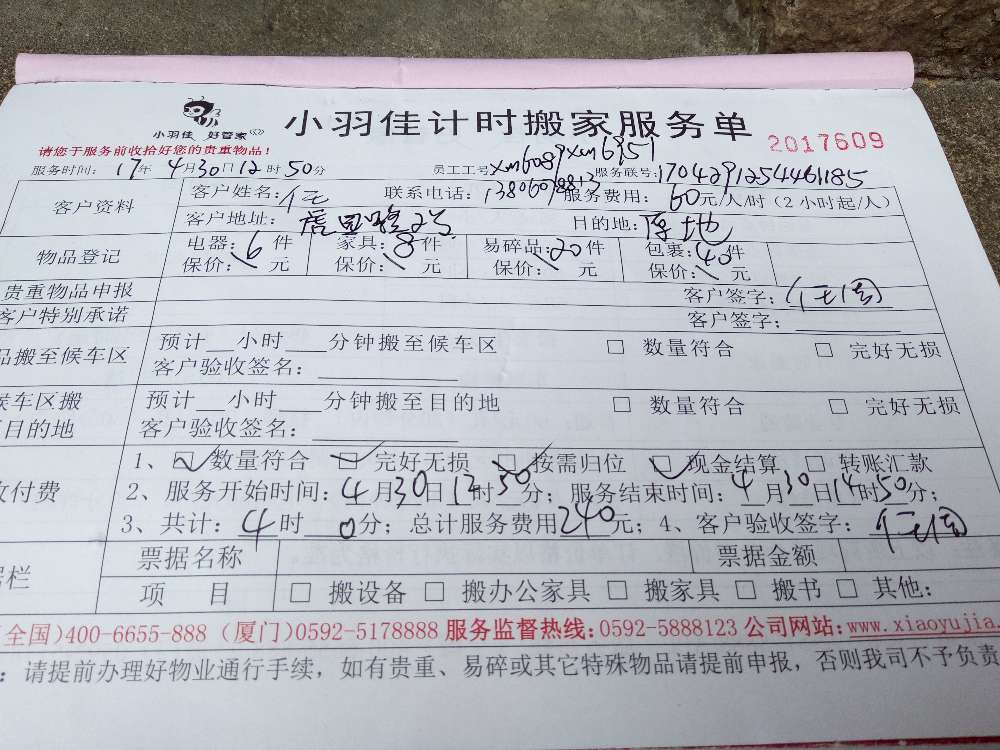 小羽佳 好管家
小羽佳计时搬家服务单
2017609
请您于服务前收拾好您的贵重物品!
服务时间: 17年 4月30日12时50分 员工工号xm6089xm6951 服务联号:1704291254461185
客户资料 客户姓名: 联系电话: 服务费用: 60元/人/时 (2 小时起/人)
客户地址: 目的地: 原地
物品登记 电器: 6 件 家具: 8 件 易碎品: 20 件 包裹: 40 件
保价: \ 元 保价: \ 元 保价: \ 元 保价: \ 元
贵重物品申报 客户签字:
客户特别承诺 客户签字:
品搬至候车区 预计___小时___分钟搬至候车区 □ 数量符合 □ 完好无损
客户验收签名:
候车区搬 预计___小时___分钟搬至目的地 □ 数量符合 □ 完好无损
目的地 客户验收签名:
收付费 1、☑ 数量符合 ☑ 完好无损 ☑ 按需归位 ☑ 现金结算 □ 转账汇款
2、服务开始时间: 4月30日12时50分; 服务结束时间: 4月30日14时50分;
3、共计: 4时 0分; 总计服务费用240元; 4、客户验收签字:
据栏 票据名称 票据金额
项 目 □ 搬设备 □ 搬办公家具 □ 搬家具 □ 搬书 □ 其他:
(全国)400-6655-888 (厦门)0592-5178888 服务监督热线:0592-5888123 公司网站:www.xiaoyujia.
: 请提前办理好物业通行手续, 如有贵重、易碎或其它特殊物品请提前申报, 否则我司不予负责